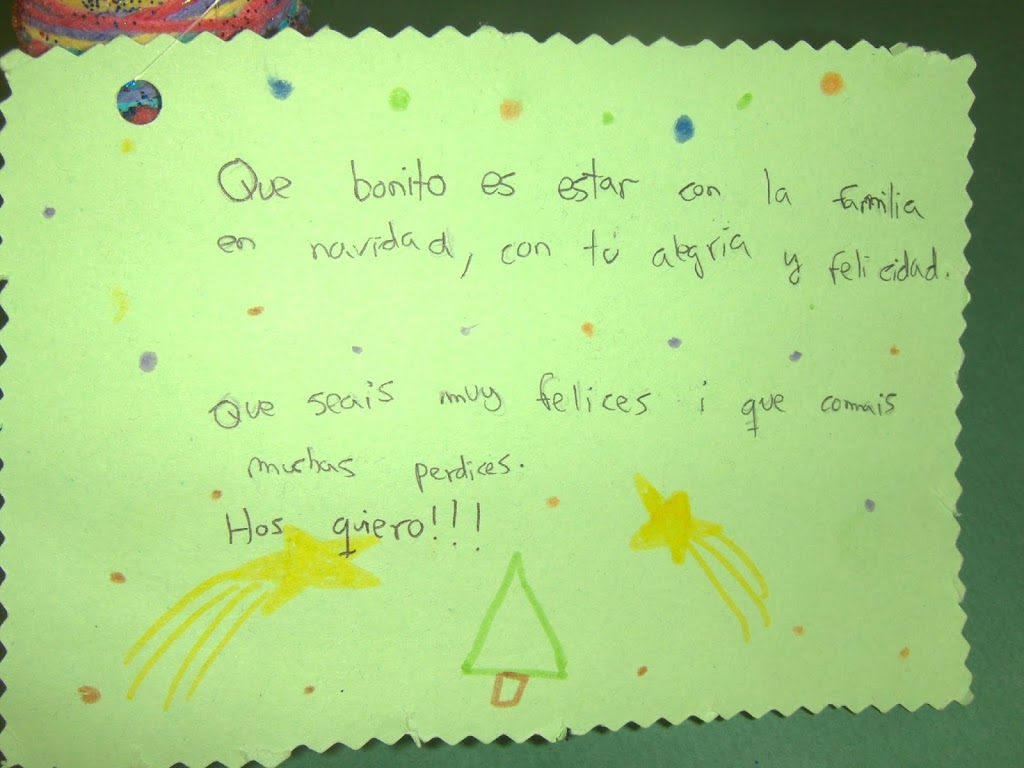 Que bonito es estar con la familia
en navidad, con tú alegría y felicidad.
Que seais muy felices i que comais
muchas perdices.
Hos quiero!!!